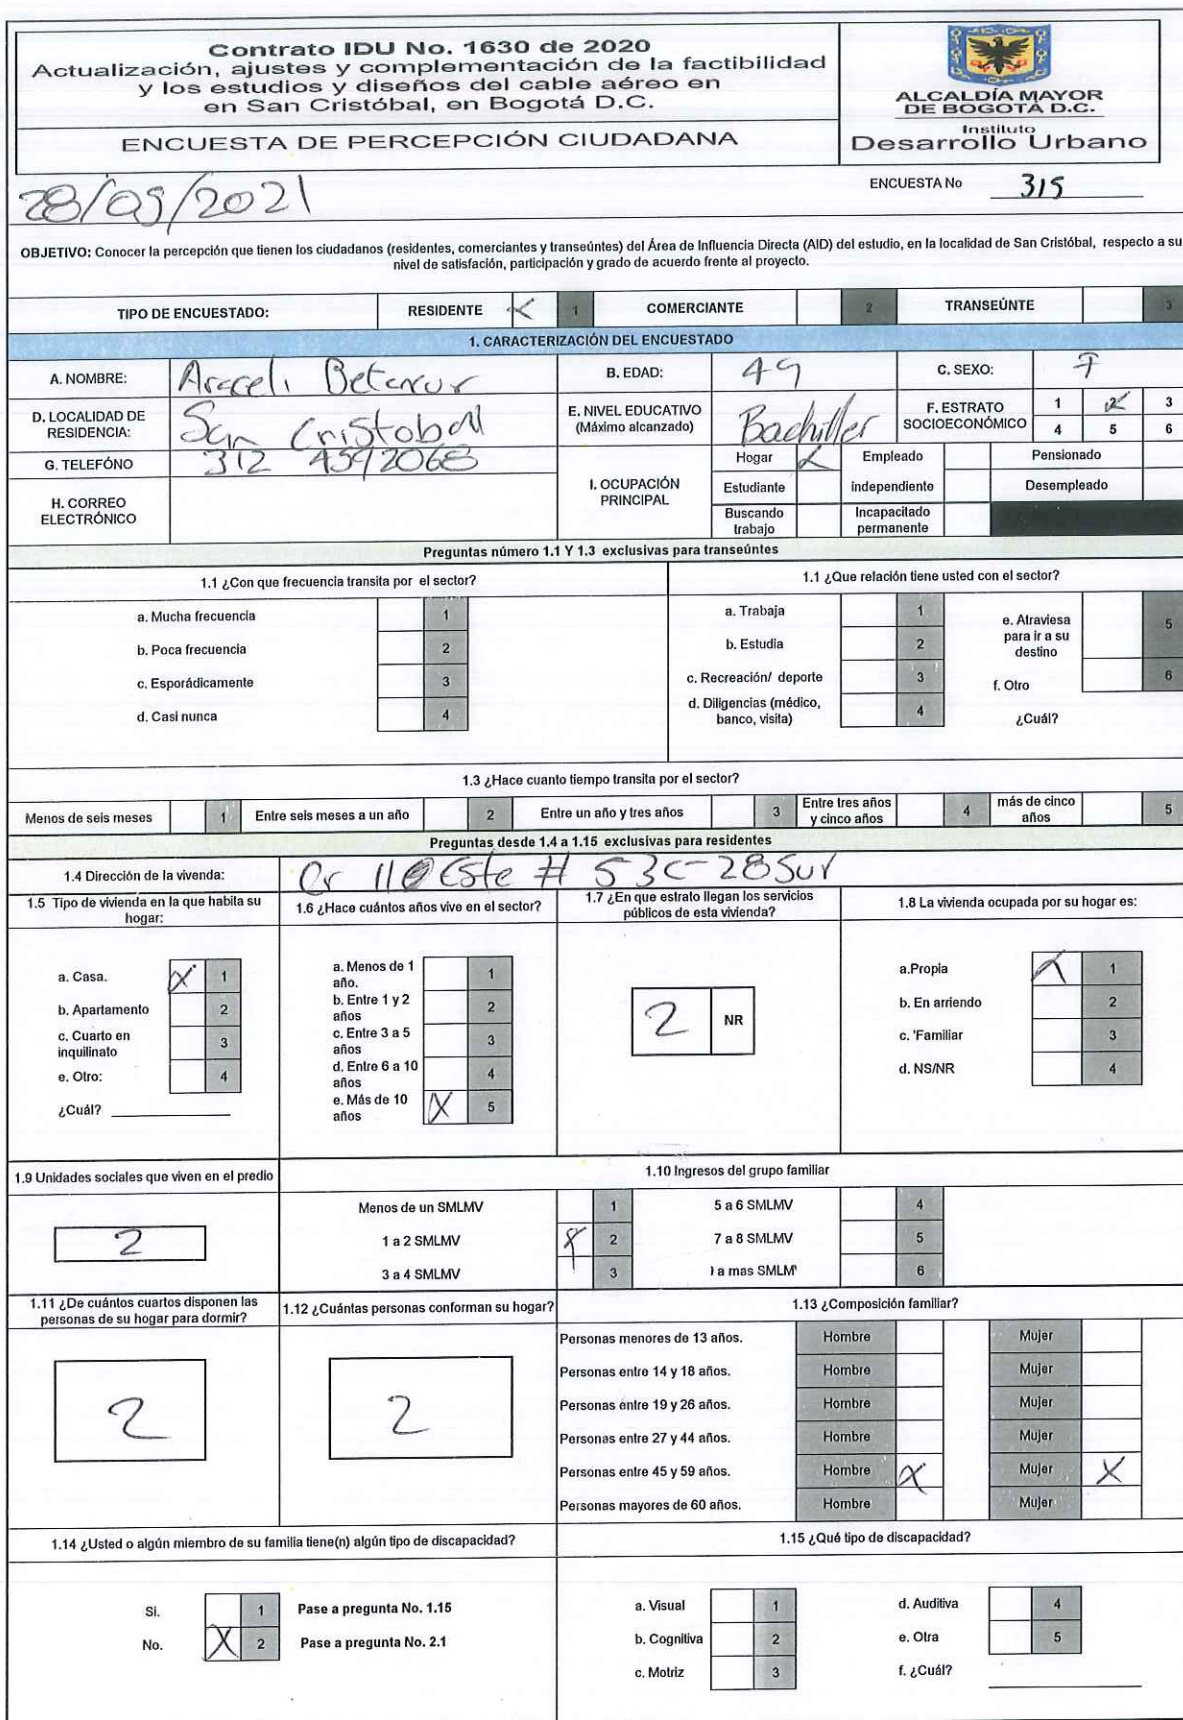 Contrato IDU No. 1630 de 2020
Actualización, ajustes y complementación de la factibilidad
y los estudios y diseños del cable aéreo en
en San Cristóbal, en Bogotá D.C.
ENCUESTA DE PERCEPCIÓN CIUDADANA
ALCALDÍA MAYOR
DE BOGOTÁ D.C.
Instituto
Desarrollo Urbano
28/09/2021
ENCUESTA No 315
OBJETIVO: Conocer la percepción que tienen los ciudadanos (residentes, comerciantes y transeúntes) del Área de Influencia Directa (AID) del estudio, en la localidad de San Cristóbal, respecto a su
nivel de satisfacción, participación y grado de acuerdo frente al proyecto.
TIPO DE ENCUESTADO: RESIDENTE X 1 COMERCIANTE 2 TRANSEÚNTE 3
1. CARACTERIZACIÓN DEL ENCUESTADO
A. NOMBRE: Araceli Betancur B. EDAD: 49 C. SEXO: F
D. LOCALIDAD DE
RESIDENCIA: San Cristobal
E. NIVEL EDUCATIVO
(Máximo alcanzado) Bachiller
F. ESTRATO
SOCIOECONÓMICO
1 2 3
4 5 6
G. TELEFÓNO 312 4592068
H. CORREO
ELECTRÓNICO
I. OCUPACIÓN
PRINCIPAL
Hogar X Empleado Pensionado
Estudiante independiente Desempleado
Buscando
trabajo
Incapacitado
permanente
Preguntas número 1.1 Y 1.3 exclusivas para transeúntes
1.1 ¿Con que frecuencia transita por el sector?
a. Mucha frecuencia 1
b. Poca frecuencia 2
c. Esporádicamente 3
d. Casi nunca 4
1.1 ¿Que relación tiene usted con el sector?
a. Trabaja 1
b. Estudia 2
c. Recreación/ deporte 3
d. Diligencias (médico,
banco, visita) 4
e. Atraviesa
para ir a su
destino 5
f. Otro 6
¿Cuál?
1.3 ¿Hace cuanto tiempo transita por el sector?
Menos de seis meses 1 Entre seis meses a un año 2 Entre un año y tres años 3 Entre tres años
y cinco años 4 más de cinco
años 5
Preguntas desde 1.4 a 1.15 exclusivas para residentes
1.4 Dirección de la vivenda: Cr 11 Este # 53C-28Sur
1.5 Tipo de vivienda en la que habita su
hogar:
a. Casa. X 1
b. Apartamento 2
c. Cuarto en
inquilinato 3
e. Otro: 4
¿Cuál?
1.6 ¿Hace cuántos años vive en el sector?
a. Menos de 1
año. 1
b. Entre 1 y 2
años 2
c. Entre 3 a 5
años 3
d. Entre 6 a 10
años 4
e. Más de 10
años X 5
1.7 ¿En que estrato llegan los servicios
públicos de esta vivienda?
2 NR
1.8 La vivienda ocupada por su hogar es:
a.Propia X 1
b. En arriendo 2
c. 'Familiar 3
d. NS/NR 4
1.9 Unidades sociales que viven en el predio
2
1.10 Ingresos del grupo familiar
Menos de un SMLMV 1 5 a 6 SMLMV 4
1 a 2 SMLMV X 2 7 a 8 SMLMV 5
3 a 4 SMLMV 3 a mas SMLM 6
1.11 ¿De cuántos cuartos disponen las
personas de su hogar para dormir?
2
1.12 ¿Cuántas personas conforman su hogar?
2
1.13 ¿Composición familiar?
Personas menores de 13 años. Hombre Mujer
Personas entre 14 y 18 años. Hombre Mujer
Personas entre 19 y 26 años. Hombre Mujer
Personas entre 27 y 44 años. Hombre Mujer
Personas entre 45 y 59 años. Hombre X Mujer X
Personas mayores de 60 años. Hombre Mujer
1.14 ¿Usted o algún miembro de su familia tiene(n) algún tipo de discapacidad?
Si. 1 Pase a pregunta No. 1.15
No. X 2 Pase a pregunta No. 2.1
1.15 ¿Qué tipo de discapacidad?
a. Visual 1 d. Auditiva 4
b. Cognitiva 2 e. Otra 5
c. Motriz 3 f. ¿Cuál?